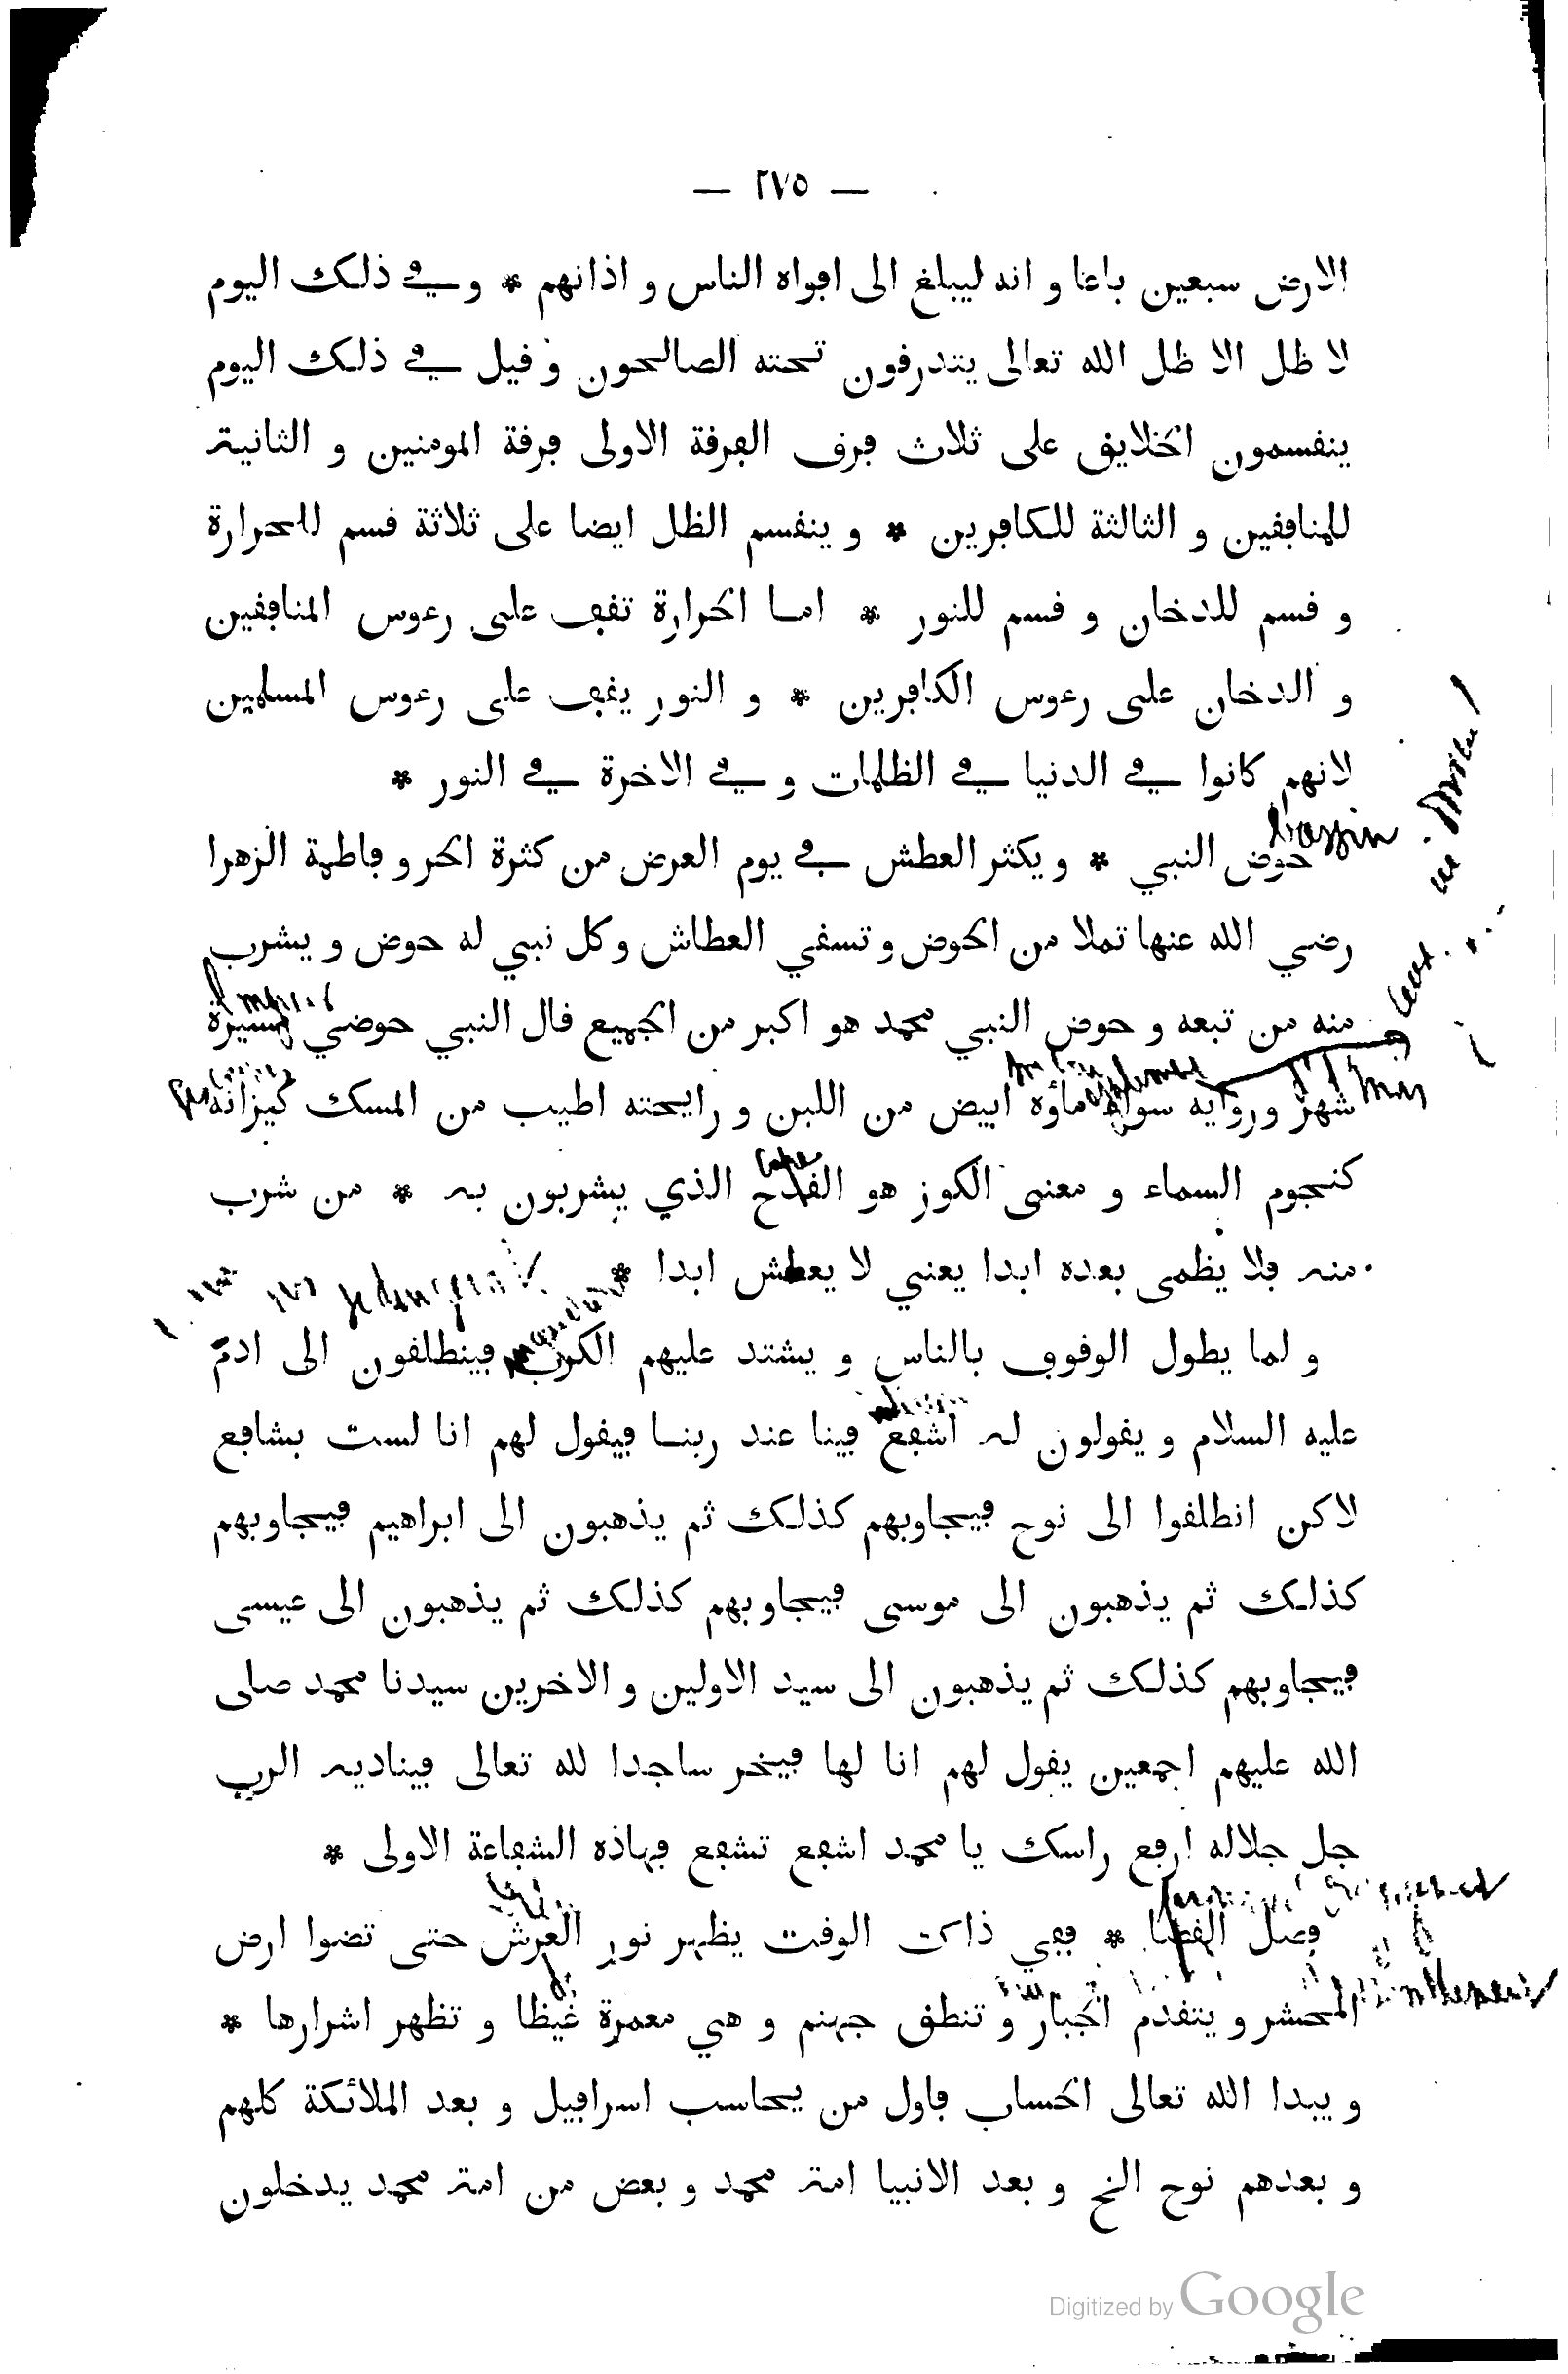 — ٢٧٥ —
الارض سبعين باعا و انه ليبلغ الى افواه الناس و اذانهم * و في ذلك اليوم
لا ظل الا ظل الله تعالى يتدرقون تحته الصالحون و قيل في ذلك اليوم
ينقسمون الخلايق على ثلاث فرق الفرقة الاولى فرقة المومنين و الثانية
للمنافقين و الثالثة للكافرين * و ينقسم الظل ايضا على ثلاثة قسم للحرارة
و قسم للدخان و قسم للنور * اما الحرارة تقف على رءوس المنافقين
و الدخان على رءوس الكافرين * و النور يقف على رءوس المسلمين
لانهم كانوا في الدنيا في الظلمات و في الاخرة في النور *
bassin
حوض النبي * و يكثر العطش في يوم العرض من كثرة الحر و فاطمة الزهرا
رضي الله عنها تملا من الحوض و تسقي العطاش و كل نبي له حوض و يشرب
منه من تبعه و حوض النبي محمد هو اكبر من الجميع قال النبي حوضي مسيرة
شهر وروايه سواء ماؤه ابيض من اللبن و رايحته اطيب من المسك كيزانه
كنجوم السماء و معنى الكوز هو القدح الذي يشربون به * من شرب
منه فلا يظمى بعده ابدا يعني لا يعطش ابدا *
و لما يطول الوقوف بالناس و يشتد عليهم الكرب فينطلقون الى ادم
عليه السلام و يقولون له اشفع فينا عند ربنا فيقول لهم انا لست بشافع
لاكن انطلقوا الى نوح فيجاوبهم كذلك ثم يذهبون الى ابراهيم فيجاوبهم
كذلك ثم يذهبون الى موسى فيجاوبهم كذلك ثم يذهبون الى عيسى
فيجاوبهم كذلك ثم يذهبون الى سيد الاولين و الاخرين سيدنا محمد صلى
الله عليهم اجمعين يقول لهم انا لها فيخر ساجدا لله تعالى فيناديه الرب
جل جلاله ارفع راسك يا محمد اشفع تشفع فهاذه الشفاعة الاولى *
فصل القضا * ففي ذاك الوقت يظهر نور العرش حتى تضوا ارض
المحشر و يتقدم الجبار و تنطق جهنم و هي معمرة غيظا و تظهر اشرارها *
و يبدا الله تعالى الحساب فاول من يحاسب اسرافيل و بعد الملائكة كلهم
و بعدهم نوح الخ و بعد الانبيا امة محمد و بعض من امة محمد يدخلون
Digitized by Google